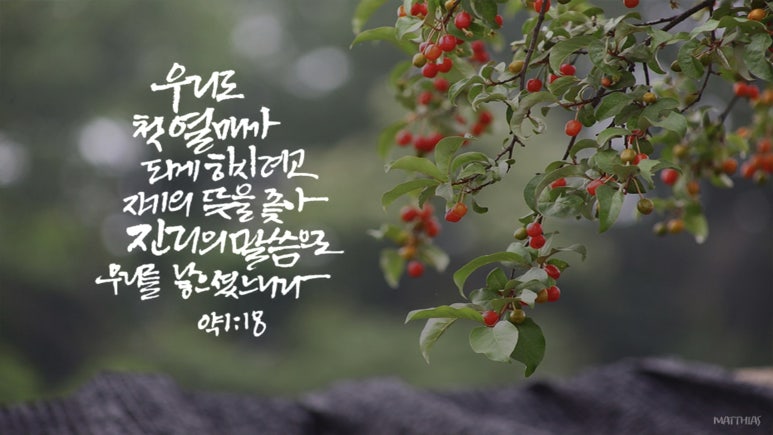 우리도
첫 열매가
되게 하시려고
자기의 뜻을 좇아
진리의 말씀으로
우리를 낳으셨느니라
약1:18
MATTHIAS